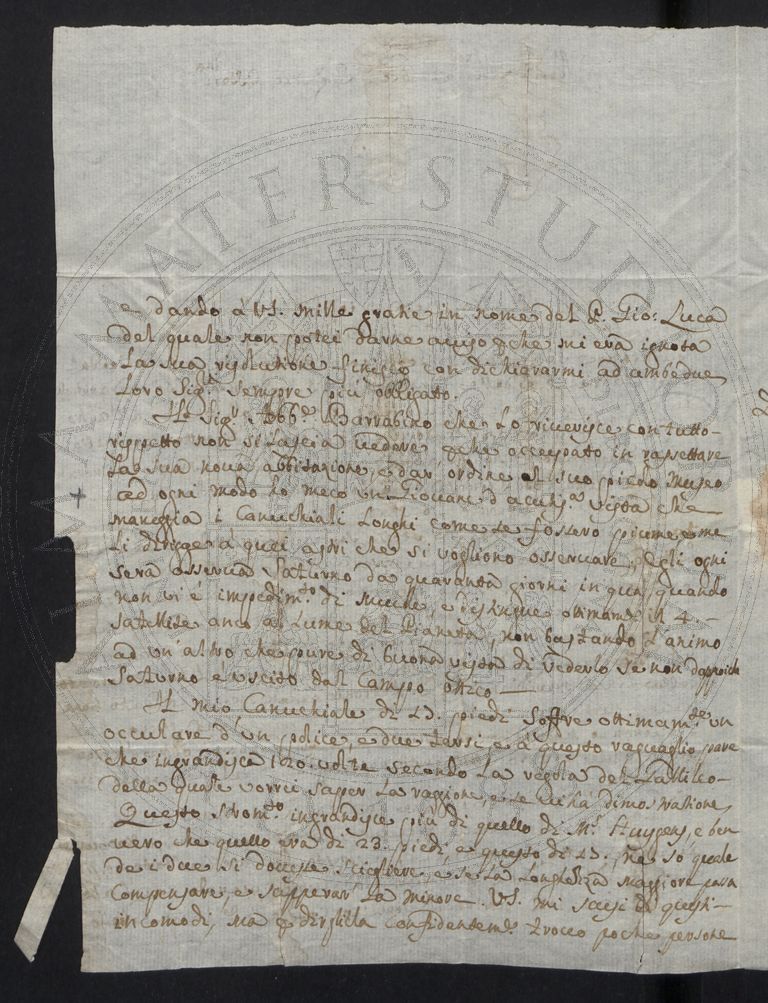 e dando à VS. mille gratie in nome del P. Gio: Luca
del quale non potei darne auiso p che mi era ignota
La sua risolutione finisco con dichiararmi ad ambedue
Loro Sig.ri sempre più obligato.
Il Sig.r Abb.e Barrabino che Lo riuerisce con tutto
rispetto non si Lascia uedere p che occupato in rassettare
La sua noua abbitazione, e dar' ordine al suo picolo Museo
ad ogni modo ho meco un Giouane d'acutiss.a vista che
maneggia i Canuchiali Longhi come se fossero piume e me
Li dirigge a quei astri che si vogliono osseruare, Egli ogni
sera osserua Saturno da quaranta giorni in qua quando
non vi é impedim.to di Nuuole, e distingue ottimam.e il 4.
Satellite anco al Lume del Pianeta, non bastando L'animo
ad un' altro che pure di buona vista di vederlo se non dappoiche
Saturno é uscito dal Campo ottico
Il mio Canuchiale di 13. piedi soffre ottimam.te un
occulare d'un police, e due terzi e a questo raguaglio pare
che ingrandisca 120. volte secondo La regola del
della quale vorrei saper La raggione, e se ui há dimostratione,
Questo strom.to ingrandisce più di quello di M.r Huygens, e ben
uero che quello era di 23. piedi, e questo di 13., Ne só quale
de i due si douesse sciegliere, e se La Longhezza maggiore possa
Compensare, e superar' La minore. VS. mi scusi di questi
incomodi, ma p dirgliela confidentem.e trouo poche persone